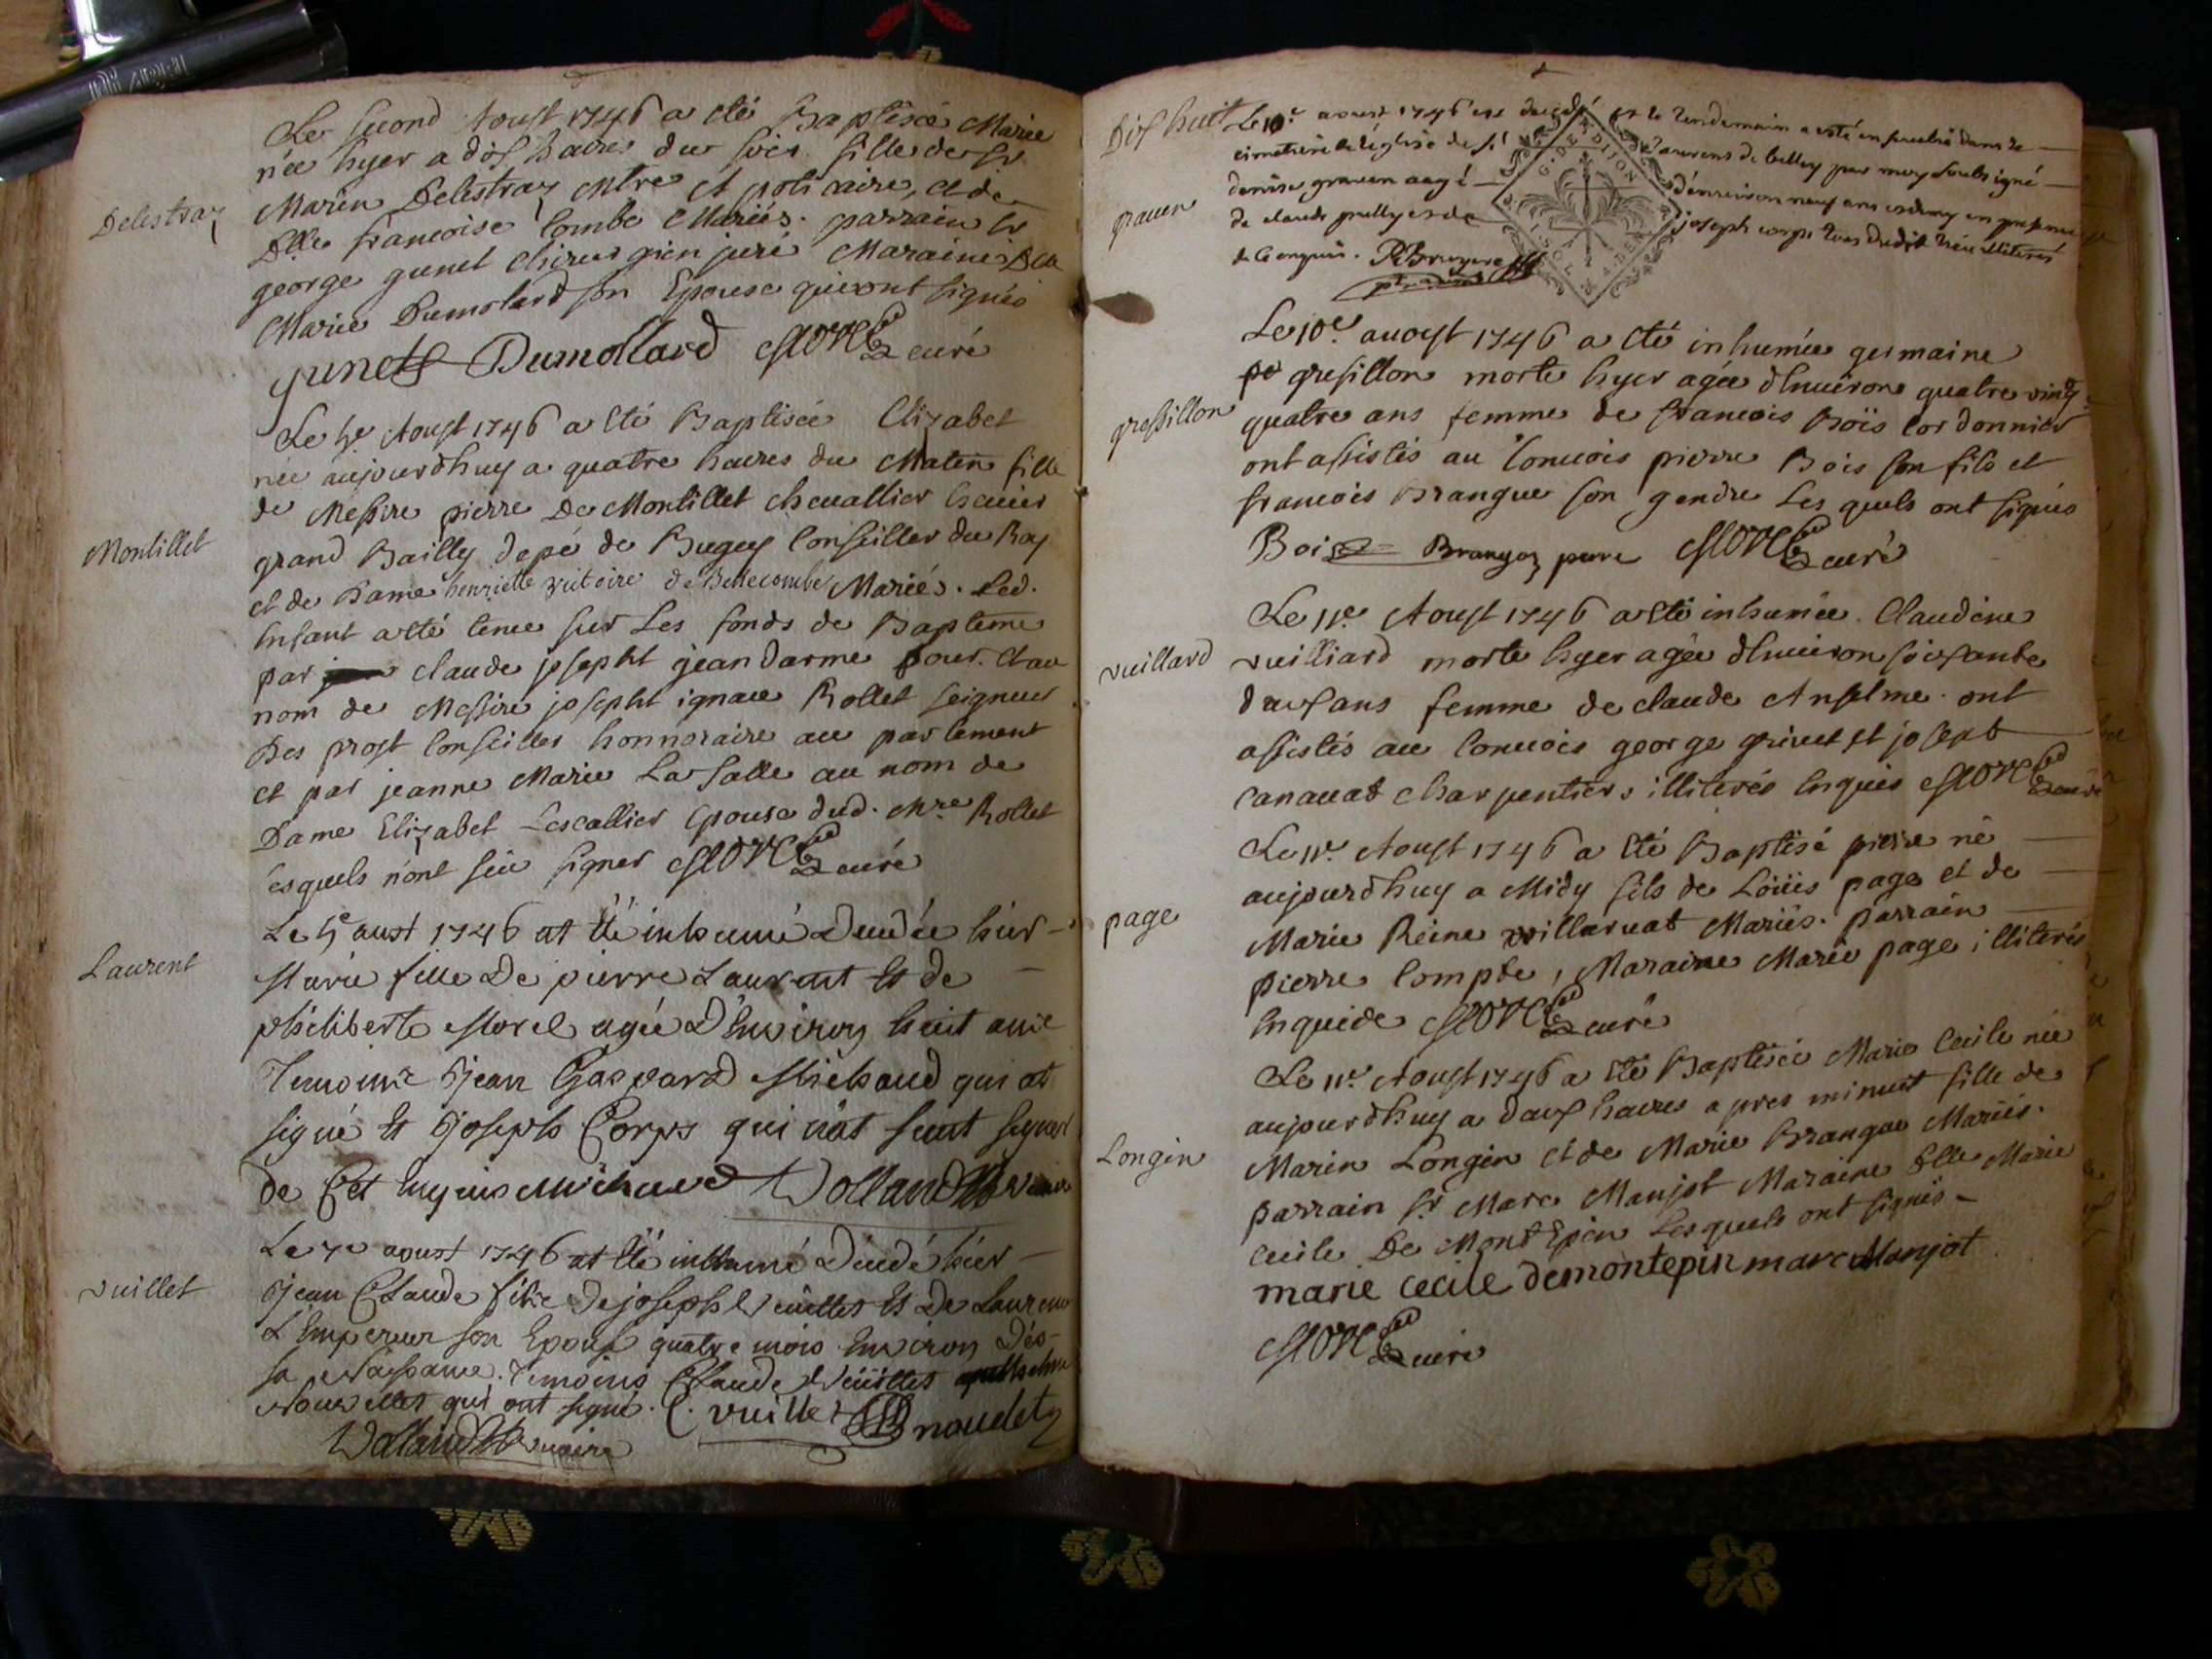 Le second Aoust 1746 a eté Baptisée Marie
née hyer a dix heures du soir fille de sr
Delestraz
Marin Delestraz Mtre Apoticaire, et de
Dlle francoise Combe Mariés. parrain sr
george gunet chirurgien juré Maraine Dlle
Marie Dumolard son Epouse qui ont signés
gunet Dumollard Morel curé
Le 5e Aoust 1746 a eté Baptisée Elizabet
née aujourdhuy a quatre heures du Matin fille
de Messire pierre De Montillet chevallier
Montillet
grand Bailly d'epé de Bugey Conseiller du Roy
et de Dame henriette victoire de Bellecombe Mariés. Led.
Enfant a eté tenue sur Les fonds de Baptême
par claude josepht jeandarme pour et au
nom de Messire josepht ignace Rollet seigneur
Des prost Conseiller honnoraire au parlement
et par jeanne Marie La salle au nom de
Dame Elizabet Lescallier Epouse dud. Mre Rollet
esquels n'ont sçu signer Morel curé
Le 5e aust 1746 at été inhumé Decedée hier
Laurent
Marie fille De pierre Laurent Et de
philiberte Morel agée D'Environ huit ans
Temoins jean Gaspard Michaud qui at
signé Et joseph Corps qui n'at seut signer
de Cet Enquis Michaud Dolland vicaire
Le 7e aoust 1746 at été inhumé Decedé hier
vuillet
jean Claude fils De joseph Vuillet Et De Laurence
L'Empereur son Epouse quatre mois Environ Dès
sa Naissance. Temoins Claude Vuillet
qui ont signé. C. vuillet naudet
Dolland vicaire
Dix huit
Le 10e aoust 1746 est decedé et le lendemain a esté ensevelie dans le
cimetiere de l'église de st Laurens de belley par moy soubsigné
graven
denise graven aagé d'environ neuf ans et demy en presence
de claude prilly et de joseph corps tous dudit lieu illiterés
de ce enquis. Bruyere
Le 10e aoust 1746 a eté inhumée germaine
gressillon
gresillon morte hyer agée d'environ quatre vingt
quatre ans femme de francois Bois cordonnier
ont assistés au Convois pierre Bois son fils et
francois Brangue son gendre Les quels ont signés
Bois Brangoz pierre Morel curé
Le 11e Aoust 1746 a eté inhumée Claudine
vuillard
vuilliard morte hyer agée d'environ soixante
deux ans femme de claude Anselme. ont
assistés au Convois george grivet et josept
Canavat charpentiers illiterés Enquis Morel curé
Le 11e Aoust 1746 a eté Baptisé pierre né
aujourdhuy a Midy fils de Loüis page et de
page
Marie Reine villarvat Mariés. parrain
pierre Compte, Maraine Marie page illiterés
Enquide Morel curé
Le 11e Aoust 1746 a eté Baptisée Marie Cecile née
aujourdhuy a deux heures apres minuit fille de
Longin
Marin Longin et de Marie Brangue Mariés.
parrain Sr Marc Manjot Maraine Dlle Marie
Cecile De MontEpin Lesquels ont signés
marie cecile demontepin marc Manjot
Morel curé